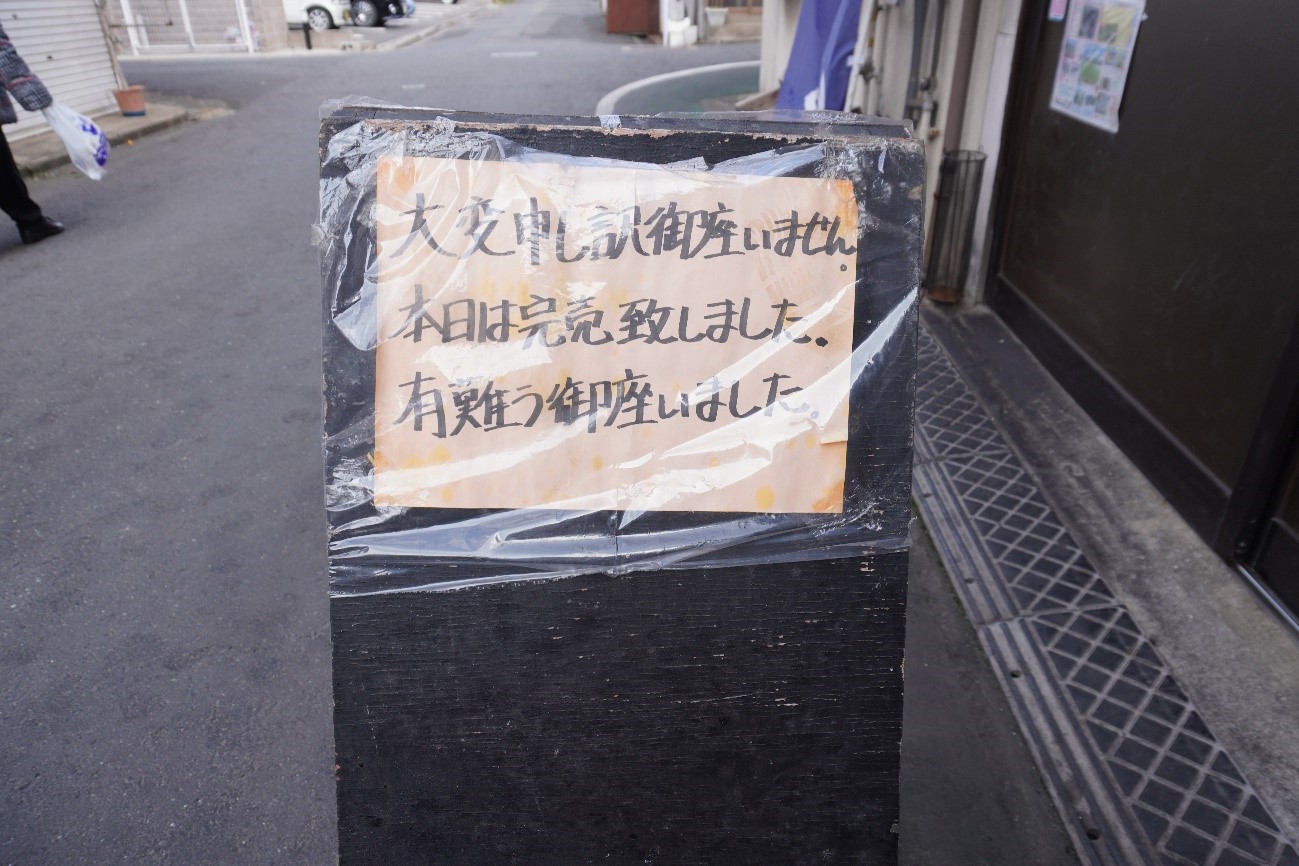 大変申し訳御座いません.
本日は完売致しました.
有難う御座いました.